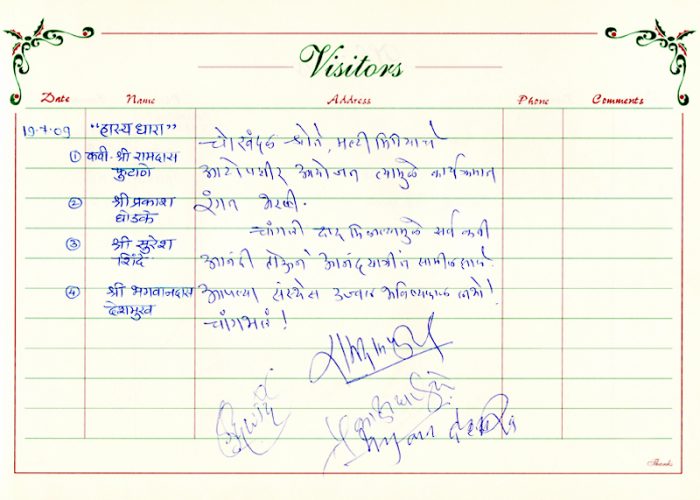 Visitors
Date Name Address Phone Comments
19-7-09 "हास्य धारा" चोखंदळ श्रोते, मल्टी मिडियाचे
① कवी. श्री रामदास आटोपशीर आयोजन त्यामुळे कार्यक्रमात
फुटाणे
② श्री प्रकाश रंगत भरली.
घोडके
चांगली दाद मिळाल्यामुळे सर्व कवी
③ श्री सुरेश आनंदी होऊन आनंदयात्रीत सामील झाले.
शिंदे
④ श्री भगवानदास आपल्या संस्थेस उज्वल भविष्यकाळ लाभो!
देशमुख
चांगभलं!
Thanks